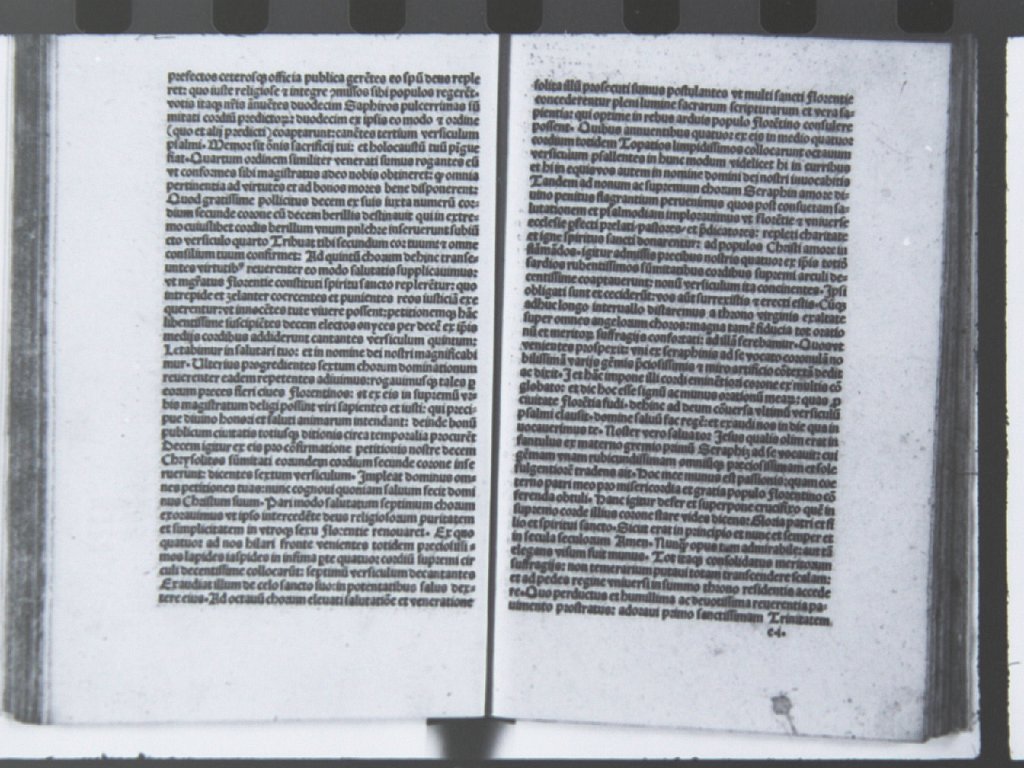 prefectos ceterosq̃ officia publica gerẽtes eo spũ deus reple
ret: quo iuste religiose ⁊ integre ꝯmissos sibi populos regerẽt
votis itaq̃ nr̃is ãnuẽtes duodecim Saphiros pulcerrimas sũ
mitati cordiũ predictoꝝ: duodecim ex ipsis eo modo ⁊ ordine
(quo et alij predicti) coaptarunt: canẽtes tertium versiculum
psalmi. Memor sit õnis sacrificij tui: et holocaustũ tuũ pĩgue
fiat. Quartum ordinem similiter venerati sumus rogantes eũ
vt conformes sibi magistratus adeo nobis obtineret: q̃ omnia
pertinentia ad virtutes et ad bonos mores bene disponerent:
Quod gratissime pollicitus decem ex suis iuxta numerũ cor-
dium secunde corone cũ decem berillis destinauit qui in extre-
mo cuiuslibet cordis berillum vnum pulchre inseruerunt subiũ
cto versiculo quarto Tribuat tibi secundum cor tuum ⁊ omne
consilium tuum confirmet: Ad quintũ chorum dehinc transe-
untes virtutibꝰ reuerenter eo modo salutatis supplicauimus:
vt mgr̃atus Florentie constituti spiritu sancto replerẽtur: quo
intrepide et zelanter coercentes et punientes reos iusticiã exe
querentur: vt innocẽtes tute viuere possent: petitionemq̃ hãc
libentissime suscipiẽtes decem electos onyces per decẽ ex ip̃is
medijs cordibus addiderunt cantantes versiculum quintum:
Letabimur in salutari tuo: et in nomine dei nostri magnificabi
mur. Ulterius progredientes sextum chorum dominationum
reuerenter eadem repetentes adiuimus: rogauimusq̃ tales ꝑ
eorum preces fieri ciues Florentinos: et ex eis in supremũ vr-
bis magistratum deligi possint viri sapientes et iusti: qui preci-
pue diuino honori et saluti animarum intendant: deinde bonũ
publicum ciuitatis totiusq̃ ditionis circa temporalia procurẽt
Decem igitur ex eis pro cõfirmatione petitionis nostre decem
Chrysolitos sũmitati eorundem cordium secunde corone inse
ruerunt: dicentes sextum versiculum. Impleat dominus om-
nes petitiones tuas: nunc cognoui quoniam saluum fecit domi
nus Christum suum. Pari modo salutatum septimum chorum
exorauimus vt ipso intercedẽte deus religiosorum puritatem
et simplicitatem in vtroq̃ sexu florentie renouaret. Ex quo
quatuor ad nos hilari fronte venientes totidem preciosissi-
mos lapides iaspides in infima ꝑte quatuor cordiũ supremi cir
culi decentissime collocarũt: septimũ versiculum decantantes
Exaudiat illum de celo sancto suo: in potentatibus salus dex-
tere eius. Ad octauũ chorum eleuati salutatiõe et veneratione
solita illũ prosecuti sumus postulantes vt multi sancti florentie
concederentur pleni lumine sacrarum scripturarum et vera sa-
pientia: qui optime in rebus arduis populo florẽtino consulere
possent. Quibus annuentibus quatuor ex eis in medio quatuor
cordium totidem Topatios limpidissimos collocarunt octauum
versiculum psallentes in hunc modum videlicet hi in curribus
et hi in equis nos autem in nomine domini dei nostri inuocabimus
Tandem ad nonum ac supremum chorum Seraphin amore di-
uino penitus flagrantium peruenimus quos post consuetam sa-
lutationem et psalmodiam implorauimus vt florẽtie ⁊ vniuerse
ecclesie ꝑfecti prelati: pastores: et p̃dicatores: repleti charitate
et igne spiritus sancti donarentur: ad populos Christi amore in
flãmãdos. igitur admissis precibus nostris quatuor ex ip̃is totidẽ
sardios rubentissimos sũmitatibus cordibus supremi circuli de-
centissime coaptauerunt: nonũ versiculum ita concinentes. Ipsi
obligati sunt et ceciderũt: nos aũt surreximus ⁊ erecti sumus. Cũq̃
adhuc longo interuallo distaremus a throno virginis exaltate
super omnes angelorum choros: magna tamẽ fiducia tot oratio
nũ et meritoꝝ suffragijs confortati: ad illã ferebamur. Quos vt
venientes prospexit: vni ex seraphinis ad se vocato coronulã no
bilissimã varijs gẽmis p̃ciosissimis ⁊ miro artificio cõtextã dedit
ac dixit. I et hãc impone illi cordi eminẽtiori corone ex multis cõ
globato: et dic hoc esse signũ ac munus orationũ meaꝝ: quas ꝓ
ciuitate florẽtia fudi. dehinc ad deum cõuersa vltimũ versiculũ
psalmi clausit. domine saluũ fac regẽ: et exaudi nos in die qua in
uocauerimus te. Noster vero saluator Jesus qualis olim erat in
fanculus ex materno gremio primũ Seraphin ad se vocauit: cui
gẽmam vnam rubicundissimam omniũq̃ preciosissimam et sole
fulgentiorẽ tradens ait. Hoc munus est passionis: quam coe
terno patri meo pro misericordia et gratia populo florentino cõ
ferenda obtuli. Hanc igitur defer et superpone crucifixo quẽ in
supremo corde illius corone stare vides dicens: Gloria patri et fi
lio et spiritui sancto. Sicut erat in principio et nunc et semper et
in secula seculorum Amen. Nunq̃ opus tam admirabile: aut tã
elegans visum fuit munus. Tot itaq̃ consolidatus meritorum
suffragijs: non temerarium putaui totam transcendere scalam:
et ad pedes regine vniuersi in summo throno residentis accede
re. Quo perductus et humillima ac deuotissima reuerentia pa-
uimento prostratus: adoraui primo sanctissimam Trinitatem
c4.